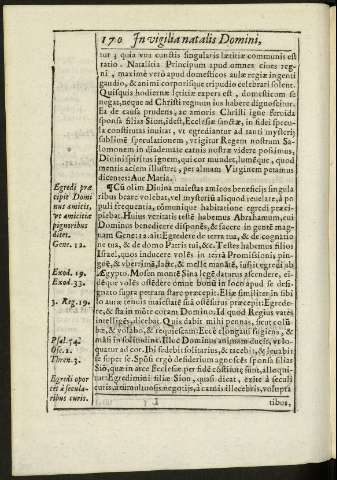 170 In vigilia natalis Domini,
tur; quia vna cunctis singularis lætitiæ communis est
ratio. Natalitia Principum apud omnes ciues reg-
ni, maximè verò apud domesticos aulæ regiæ ingenti
gaudio, & animi corporisque tripudio celebrari solent.
Quisquis hodiernæ lętitiæ expers est, domesticum se
negat, neque ad Christi regnum ius habere dignoscitur.
Ea de causa prudens, ac amoris Christi igne feruida
sponsa filias Sion, idest, Ecclesiæ sanctæ, in fidei specu-
la constitutas inuitat, vt egrediantur ad tanti mysterij
sublimẽ speculationem, vtigitur Regem nostrum Sa-
lomonem in diademate carnis nostræ videre possimus,
Diuini spiritus ignem, qui cor mundet, lumẽque, quod
mentis aciem illustret, per almam Virginem petamus
dicentes: Aue Maria.
Egredi præ
cipit Domi
nus amicis,
vt amicitiæ
pignoribus
ditet.
Gene. 12.
¶Cũ olim Diuina maiestas amicos beneficijs singula
ribus beare volebat, vel mysteriũ aliquod reuelare, à po
puli frequentia, cõmunique habitatione egredi præci-
piebat. Huius veritatis testẽ habemus Abrahamum, cui
Dominus benedicere disponẽs, & facere in gentẽ mag-
nam Gene: 12. ait: Egredere de terra tua, & de cognatio
ne tua, & de domo Patris tui, &c. Testes habemus filios
Israel, quos inducere volẽs in terrã Promissionis pin-
guẽ, & vberrimã, lacte, & melle manãtẽ, iussit egredi ab
Exod. 19.
Exod. 33.
Ægypto. Mosen montẽ Sina legẽ daturus ascendere, ei-
dẽque volẽs ostẽdere omne bonũ in loco apud se desi-
gnato supra petram stare præcepit: Eliæ similiter in sibi
3. Reg. 19.
lo auræ tenuis maiestatẽ suã ostẽsurus præcepit: Egrede-
re, & sta in mõte coram Domino. Id quod Regius vates
intelligẽs, dicebat. Quis dabit mihi pennas, sicut colũ-
bæ, & volabo, & requiescam? Ecce elongaui fugiens, &
Psal. 54.
Ose. 2.
Thren. 3.
mãsi in solitudine. Illuc Dominus animam ducit, vt lo-
quatur ad cor. Ibi sedebit solitarius, & tacebit, & leuabit
sẽ super se. Spõsi ergò desiderium agnoscẽs sponsa filias
Siõ, quæ in arce Ecclesiæ per fidẽ cõstitutæ sunt, alloqui-
Egredi opor
tet à secula-
ribus curis.
tur: Egredimini filiæ Sion, quasi dicat, exite à seculi
curis, à tumultuosis negotijs, à carnis illecebris, volupta
tibus,